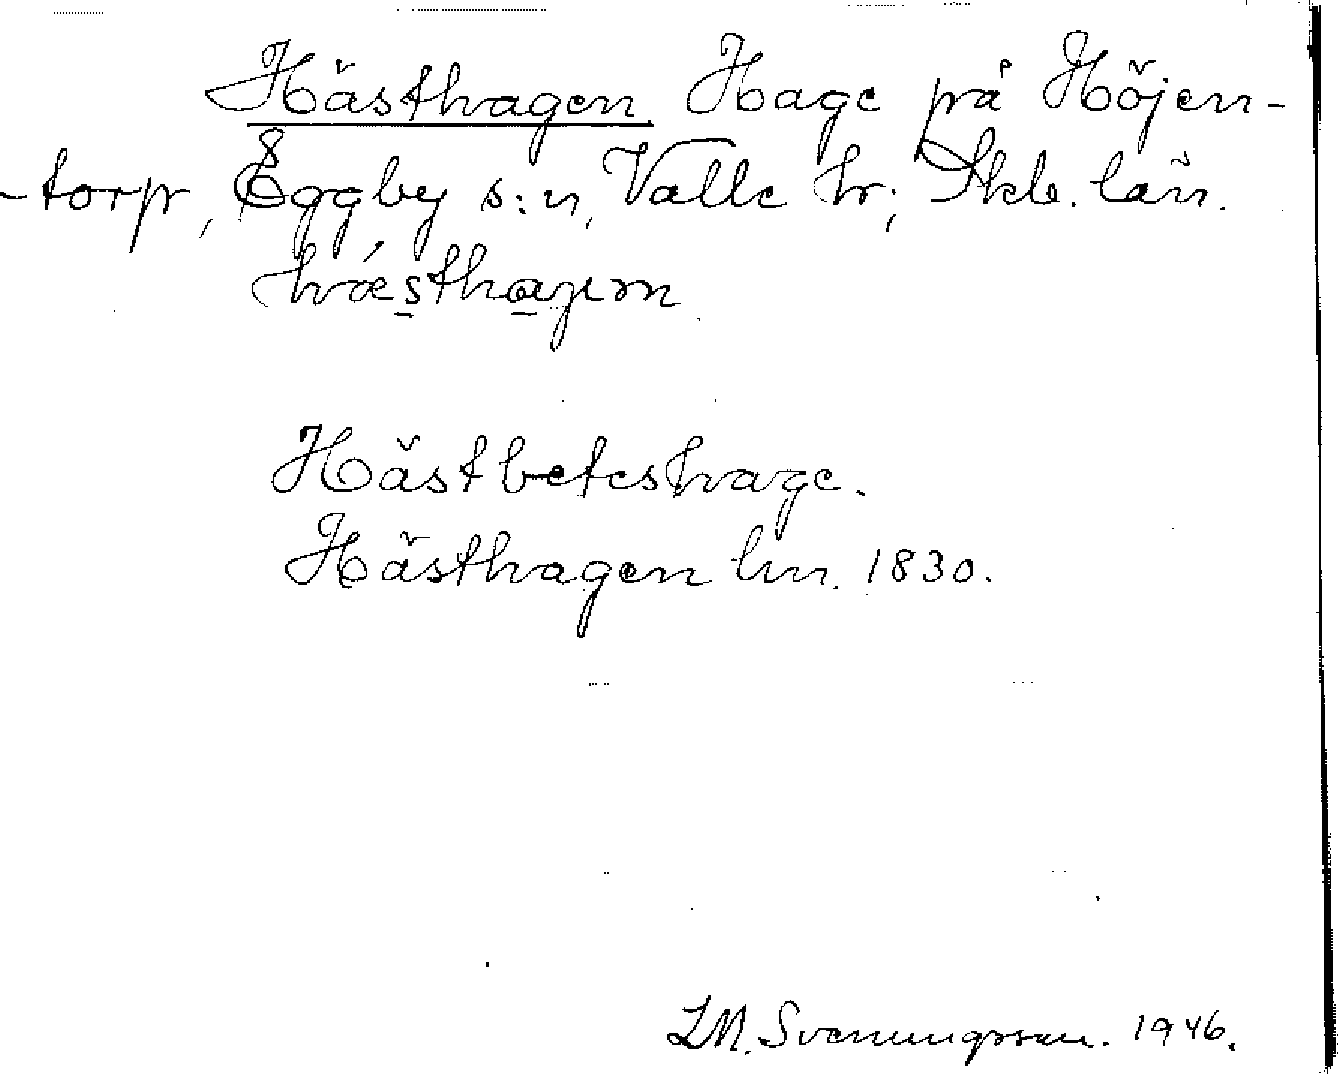 Hästhagen. Hage på Höjen-
-torp, Eggby s:n, Valle hr; Skb. län.
hǽsthagen
Hästbeteshage.
Hästhagen lm. 1830.
LM. Svenungsson. 1946.